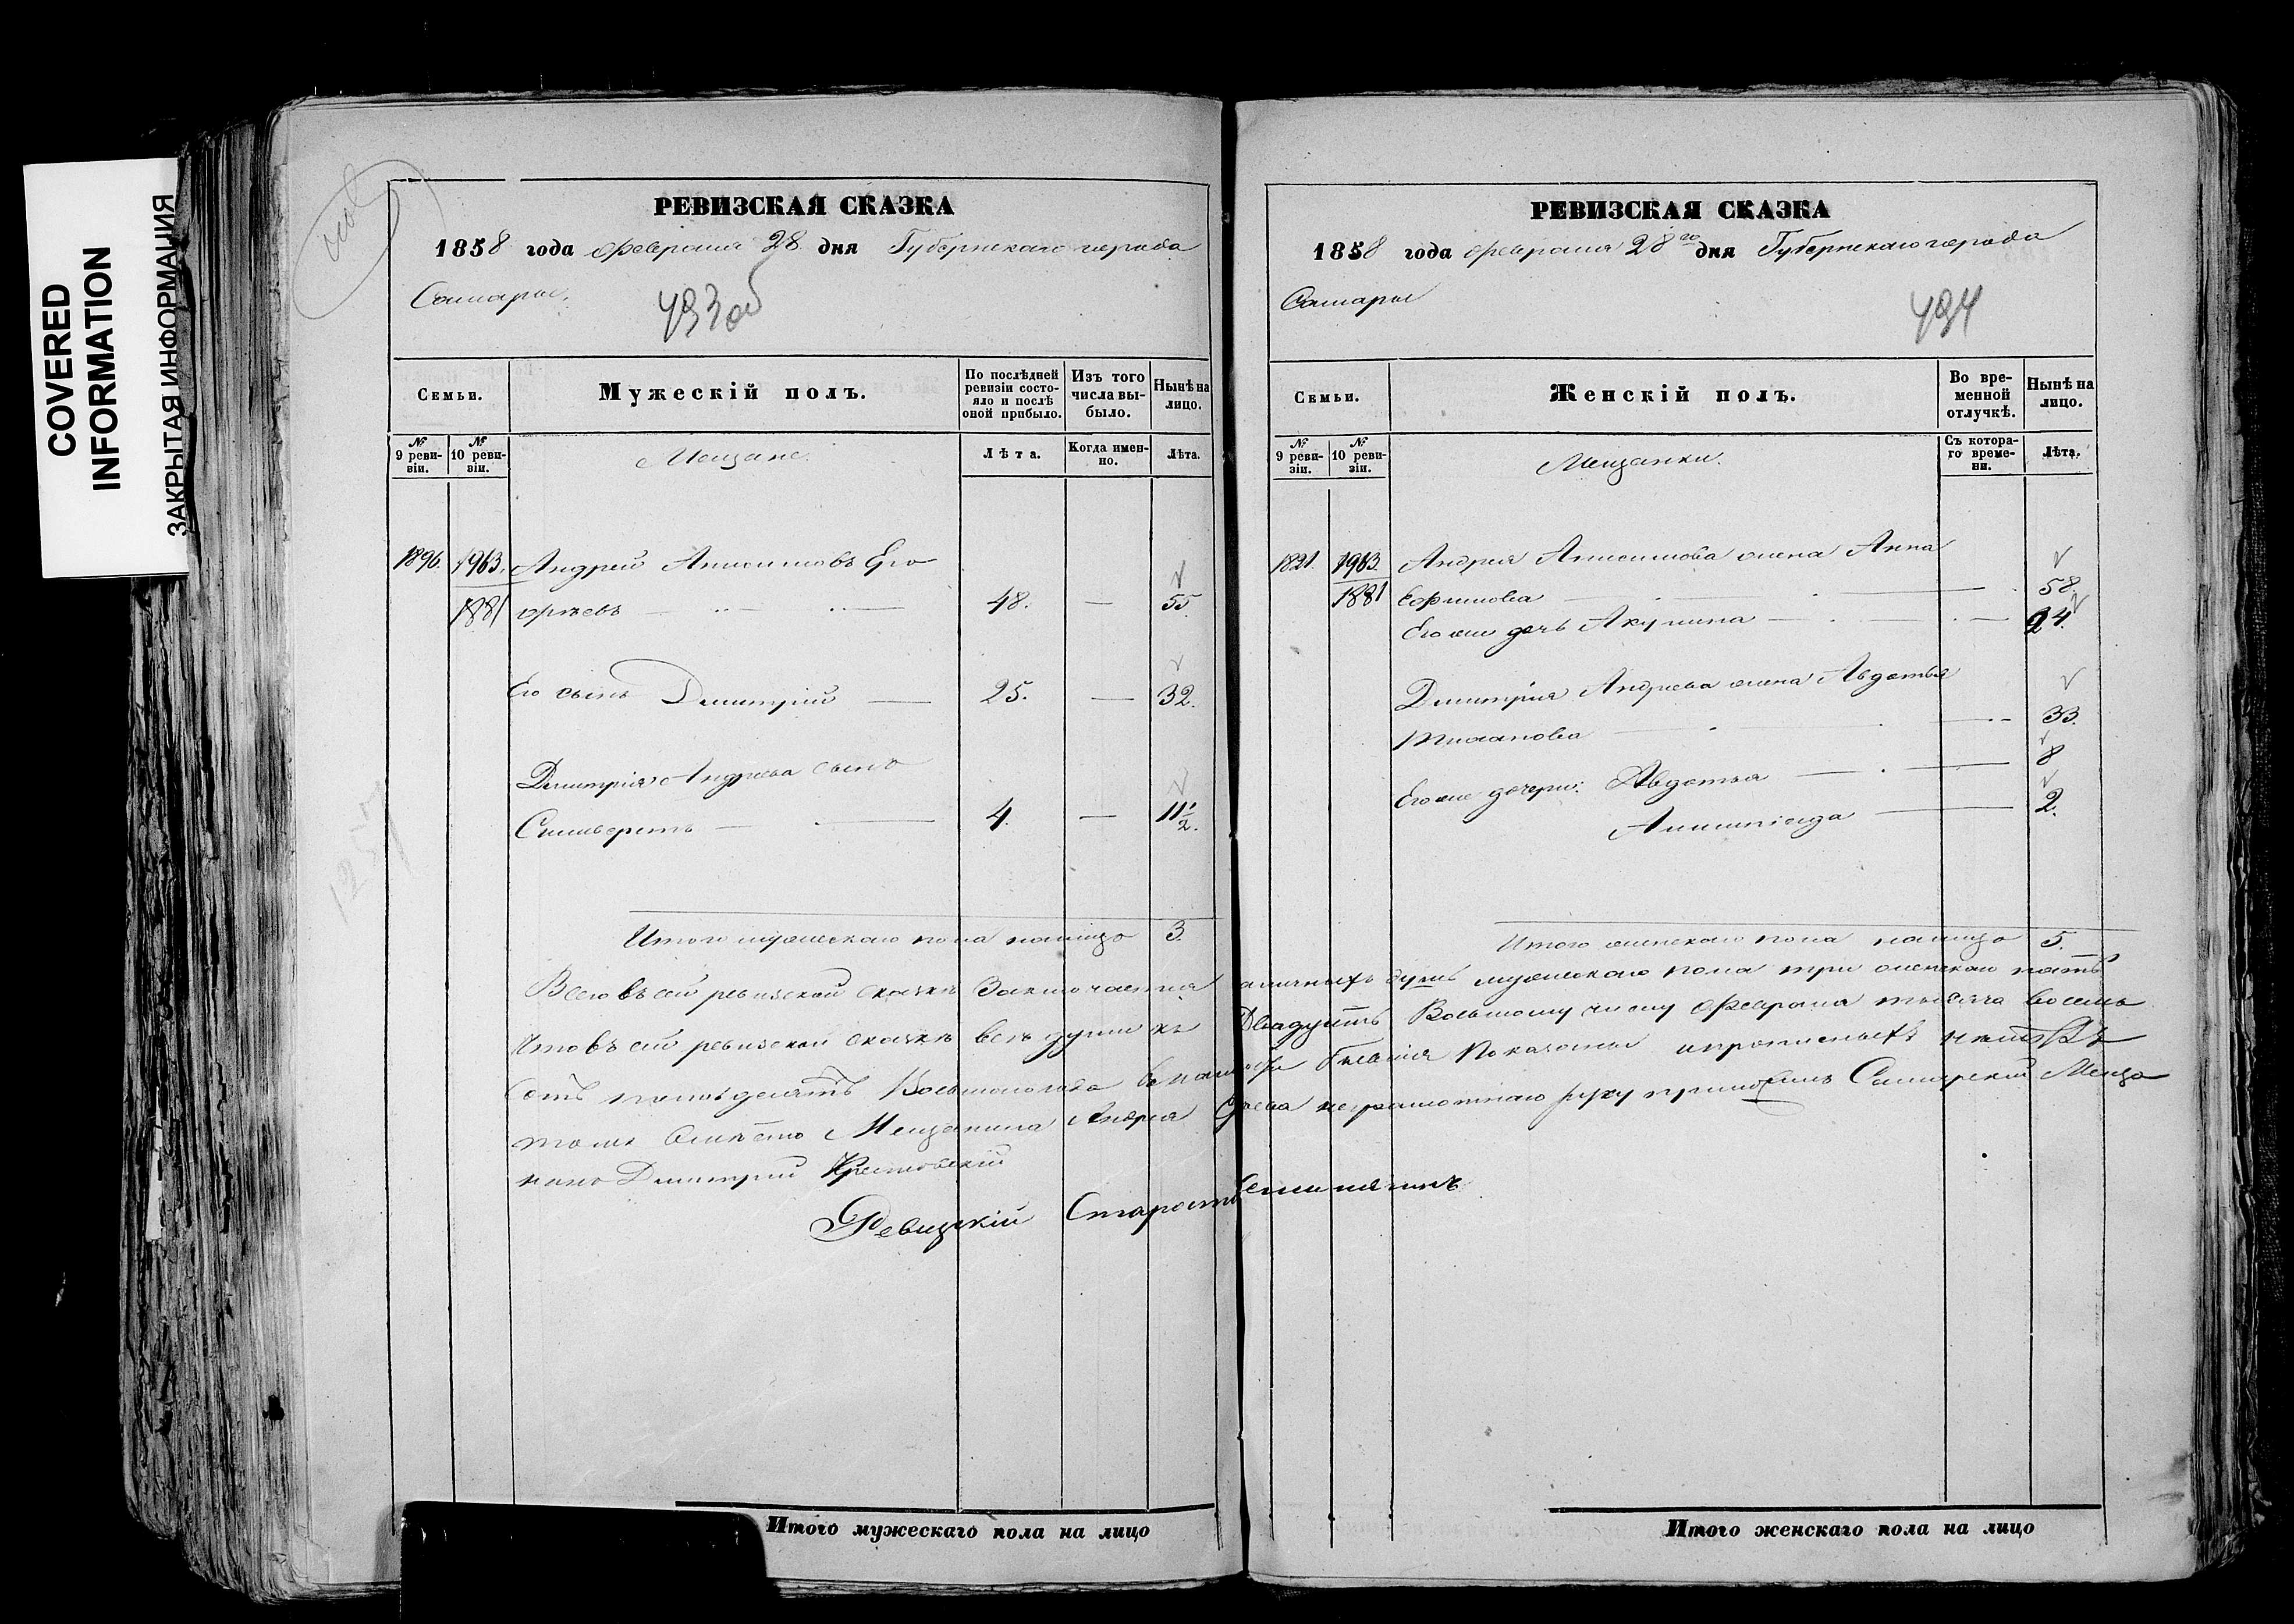 COVERED
INFORMATION
ЗАКРЫТАЯ ИНФОРМАЦИЯ
РЕВИЗСКАЯ СКАЗКА
1858 года февраля 28 дня Губернскаго города
Самары.
493об
Семьи.
Мужескій полъ.
По послѣдней ревизіи состояло и послѣ оной прибыло.
Изъ того числа выбыло.
Нынѣ на лицо.
№ 9 ревизіи.
№ 10 ревизіи.
Мещане.
Лѣта.
Когда именно.
Лѣта.
1896. 1963. Андрей Анисимовъ Его
1881 — 48. — 55
Его сынъ Дмитрій — 25. — 32.
Дмитрія Андреева сынъ
— 4. — 11½.
Итого мужескаго пола налицо 3.
РЕВИЗСКАЯ СКАЗКА
1858 года февраля 28го дня Губернскаго города
Самары
494
Семьи.
Женскій полъ.
Во временной отлучкѣ.
Нынѣ на лицо.
№ 9 ревизіи.
№ 10 ревизіи.
Мещанки.
Съ котораго времени.
Лѣта.
1821. 1963. Андрея Анисимова жена Анна
1881 Ефимова — 58.
Его же дочь Акулина — 24.
Дмитрія Андреева жена Авдотья
— 33.
Его же дочери: Авдотья — 8
— 2.
Итого женскаго пола налицо 5.
Всего въ сей ревизской сказкѣ Заключается наличныхъ душъ мужескаго пола три женскаго пять
Что въ сей ревизской сказкѣ всѣ души къ Двадцать Восьмому числу Февраля тысяча восемь
сотъ пятьдесятъ Восьмого года въ налицо бывшія Показаны и прописныхъ нѣтъ Въ
томъ вмѣсто Мещанина Андрея неграмотнаго руку приложилъ Самарскій Меща
нинъ Дмитрій
Ревизскій Староста
Итого мужескаго пола на лицо
Итого женскаго пола на лицо